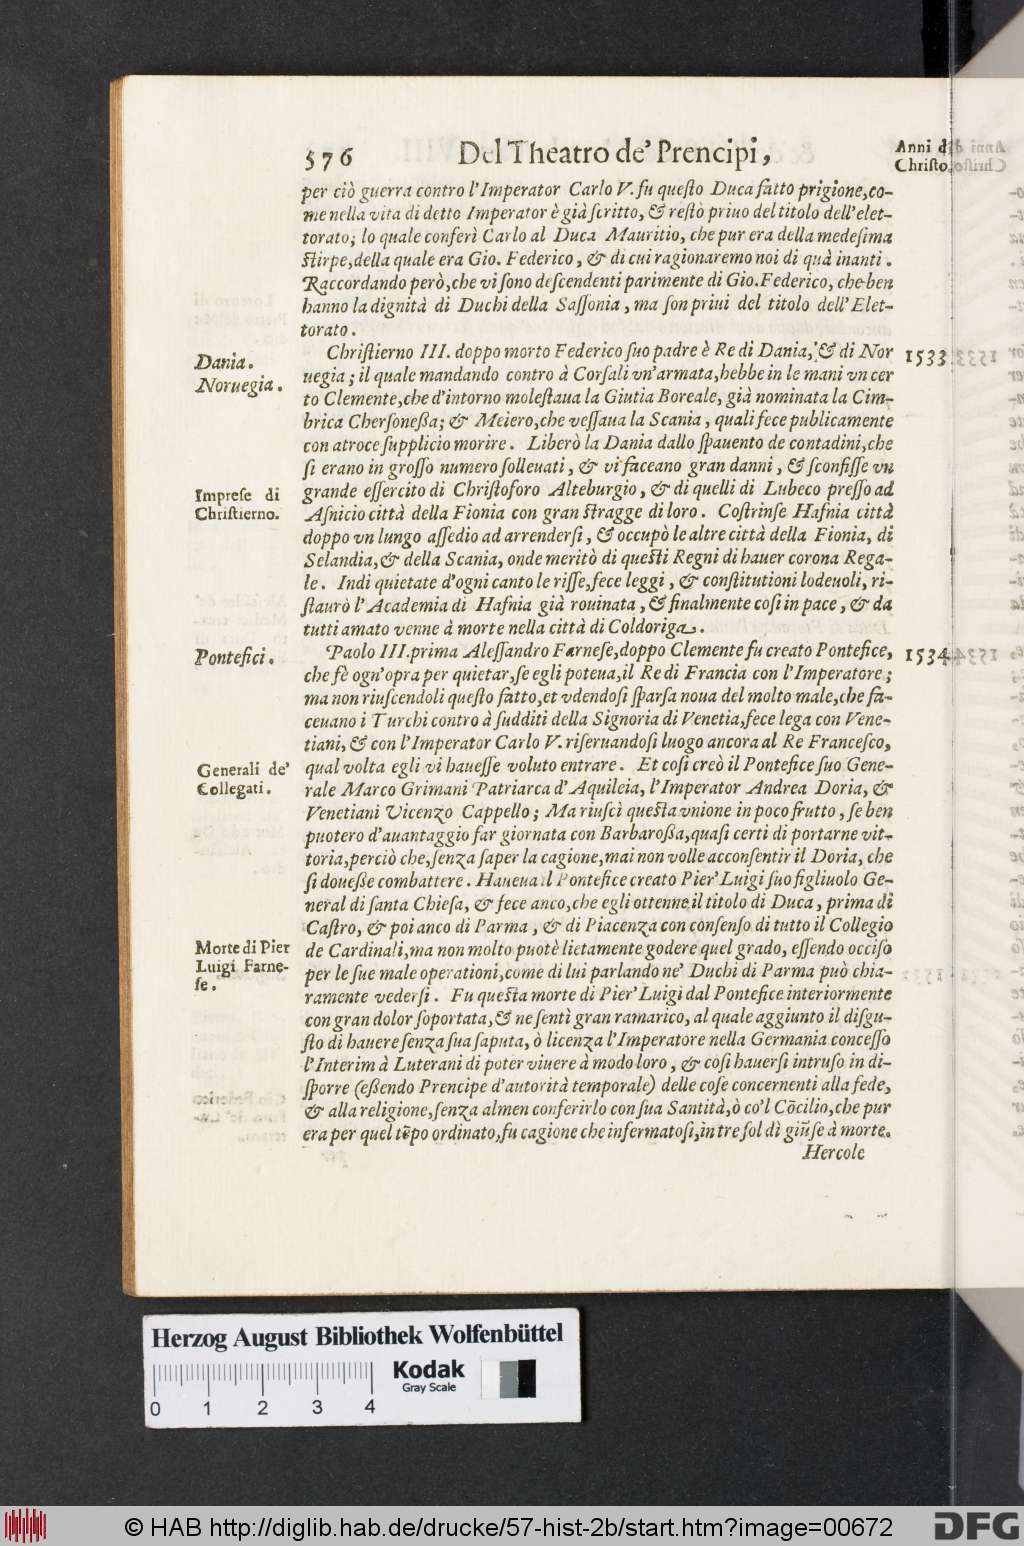 576 Del Theatro de' Prencipi,
Anni di
Christo.
per ciò guerra contro l'Imperator Carlo V. fu queſto Duca fatto prigione, co-
me nella vita di detto Imperator è già ſcritto, & reſtò priuo del titolo dell'elet-
torato; lo quale conferì Carlo al Duca Mauritio, che pur era della medeſima
ſtirpe, della quale era Gio. Federico, & di cui ragionaremo noi di quà inanti.
Raccordando però, che vi ſono deſcendenti parimente di Gio. Federico, che ben
hanno la dignità di Duchi della Saſſonia, ma ſon priui del titolo dell'Elet-
torato.
Dania.
Noruegia.
Chriſtierno III. doppo morto Federico ſuo padre è Re di Dania, & di Nor 1533
uegia; il quale mandando contro à Corſali vn'armata, hebbe in le mani vn cer
to Clemente, che d'intorno moleſtaua la Giutia Boreale, già nominata la Cim-
brica Cherſoneßa; & Meiero, che veſſaua la Scania, quali fece publicamente
con atroce ſupplicio morire. Liberò la Dania dallo ſpauento de contadini, che
ſi erano in groſſo numero ſolleuati, & vi faceano gran danni, & ſconfiſſe vn
Impreſe di
Chriſtierno.
grande eſſercito di Chriſtoforo Alteburgio, & di quelli di Lubeco preſſo ad
Aſnicio città della Fionia con gran ſtragge di loro. Coſtrinſe Hafnia città
doppo vn lungo aſſedio ad arrenderſi, & occupò le altre città della Fionia, di
Selandia, & della Scania, onde meritò di queſti Regni di hauer corona Rega-
le. Indi quietate d'ogni canto le riſſe, fece leggi, & conſtitutioni lodeuoli, ri-
ſtaurò l'Academia di Hafnia già rouinata, & finalmente coſi in pace, & da
tutti amato venne à morte nella città di Coldoriga.
Pontefici.
Paolo III. prima Aleſſandro Farneſe, doppo Clemente fu creato Pontefice, 1534
che fè ogn'opra per quietar, ſe egli poteua, il Re di Francia con l'Imperatore;
ma non riuſcendoli queſto fatto, et vdendoſi ſparſa noua del molto male, che fa-
ceuano i Turchi contro à ſudditi della Signoria di Venetia, fece lega con Vene-
tiani, & con l'Imperator Carlo V. riſeruandoſi luogo ancora al Re Franceſco,
Generali de'
Collegati.
qual volta egli vi haueſſe voluto entrare. Et coſi creò il Pontefice ſuo Gene-
rale Marco Grimani Patriarca d'Aquileia, l'Imperator Andrea Doria, &
Venetiani Vicenzo Cappello; Ma riuſcì queſta vnione in poco frutto, ſe ben
puotero d'auantaggio far giornata con Barbaroßa, quaſi certi di portarne vit-
toria, perciò che, ſenza ſaper la cagione, mai non volle acconſentir il Doria, che
ſi doueße combattere. Haueua il Pontefice creato Pier'Luigi ſuo figliuolo Ge-
neral di ſanta Chieſa, & fece anco, che egli ottenne il titolo di Duca, prima di
Caſtro, & poi anco di Parma, & di Piacenza con conſenſo di tutto il Collegio
Morte di Pier
Luigi Farne-
ſe.
de Cardinali, ma non molto puotè lietamente godere quel grado, eſſendo occiſo
per le ſue male operationi, come di lui parlando ne' Duchi di Parma può chia-
ramente vederſi. Fu queſta morte di Pier'Luigi dal Pontefice interiormente
con gran dolor ſoportata, & ne ſentì gran ramarico, al quale aggiunto il diſgu-
ſto di hauere ſenza ſua ſaputa, ò licenza l'Imperatore nella Germania conceſſo
l'Interim à Luterani di poter viuere à modo loro, & coſi hauerſi intruſo in di-
ſporre (eßendo Prencipe d'autorità temporale) delle coſe concernenti alla fede,
& alla religione, ſenza almen conferirlo con ſua Santità, ò co'l Cōcilio, che pur
era per quel tēpo ordinato, fu cagione che infermatoſi, in tre ſol dì giūſe à morte.
Hercole
Herzog August Bibliothek Wolfenbüttel
Kodak
Gray Scale
0 1 2 3 4
© HAB http://diglib.hab.de/drucke/57-hist-2b/start.htm?image=00672
DFG